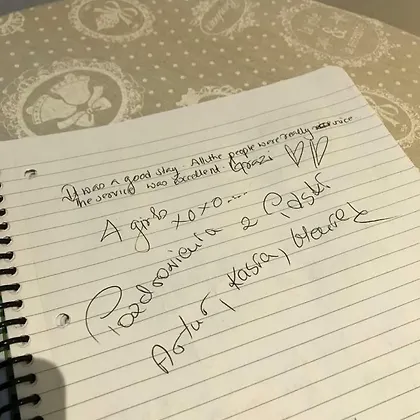 It was a good stay. All the people were really nice
the service was excellent. Grazi
A girls xoxo....
Pozdrowienia z Polski
Artur, Kasia,